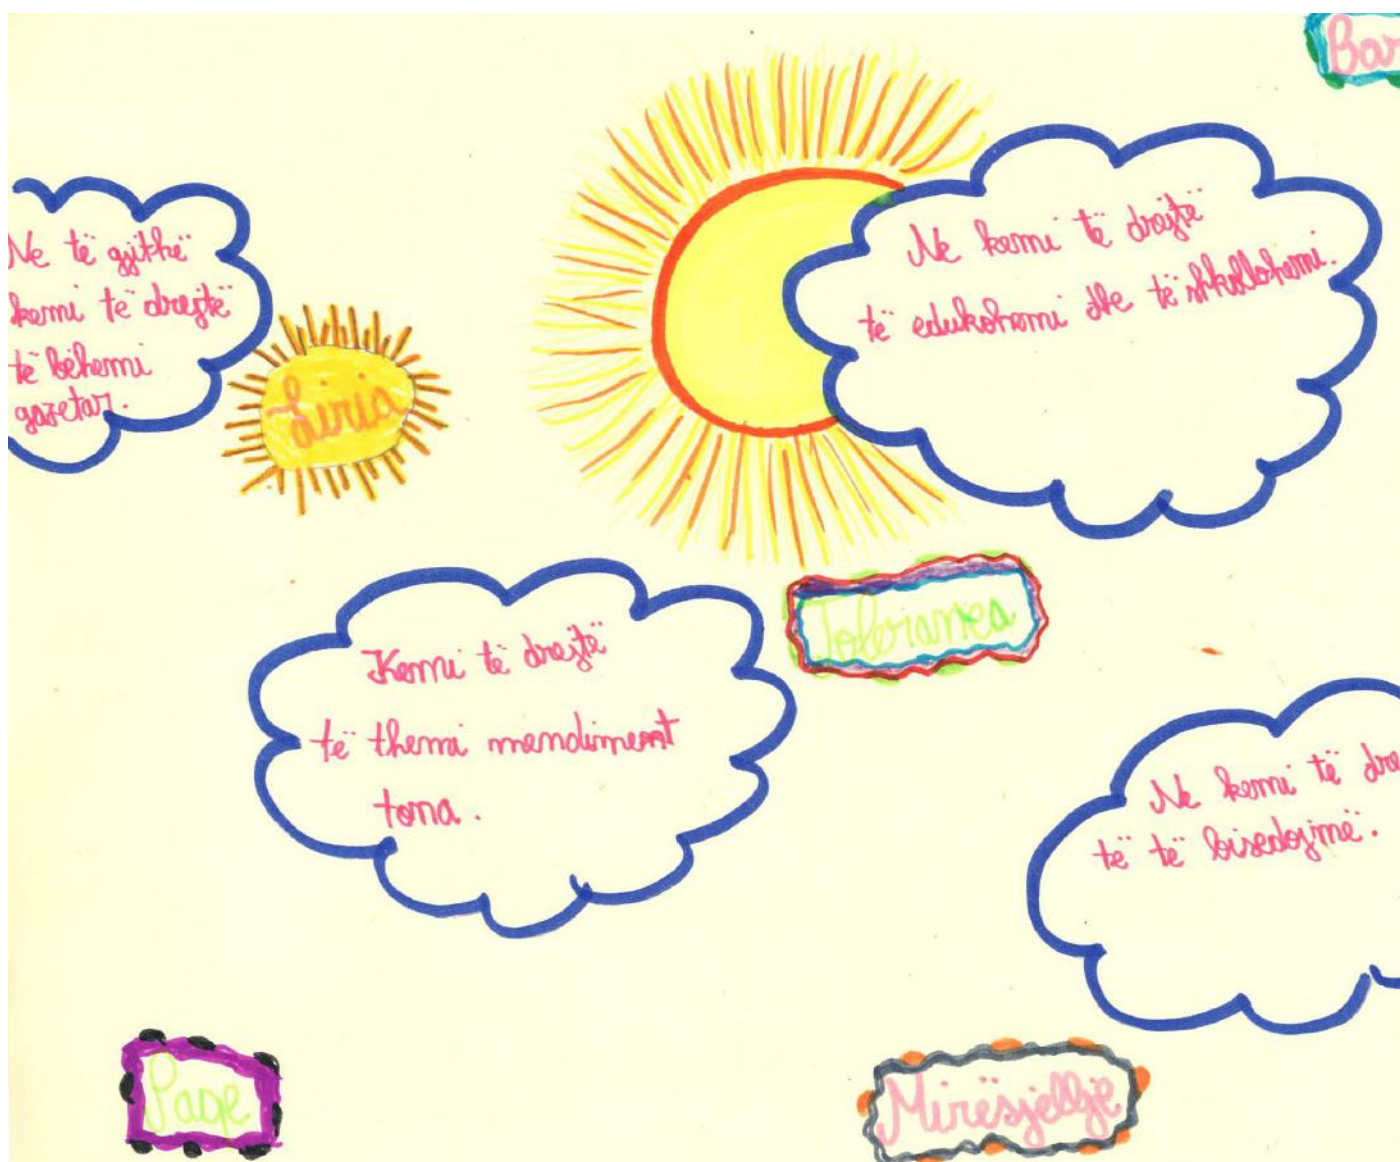 Bar
Ne të gjithë
kemi të drejtë
të bëhemi
gazetar.
Liria
Ne kemi të drejtë
të edukohemi dhe të shkollohemi.
Toleranca
Kemi të drejtë
të themi mendiment
tona.
Ne kemi të dre
të të bisedojmë.
Paqe
Mirësjellje